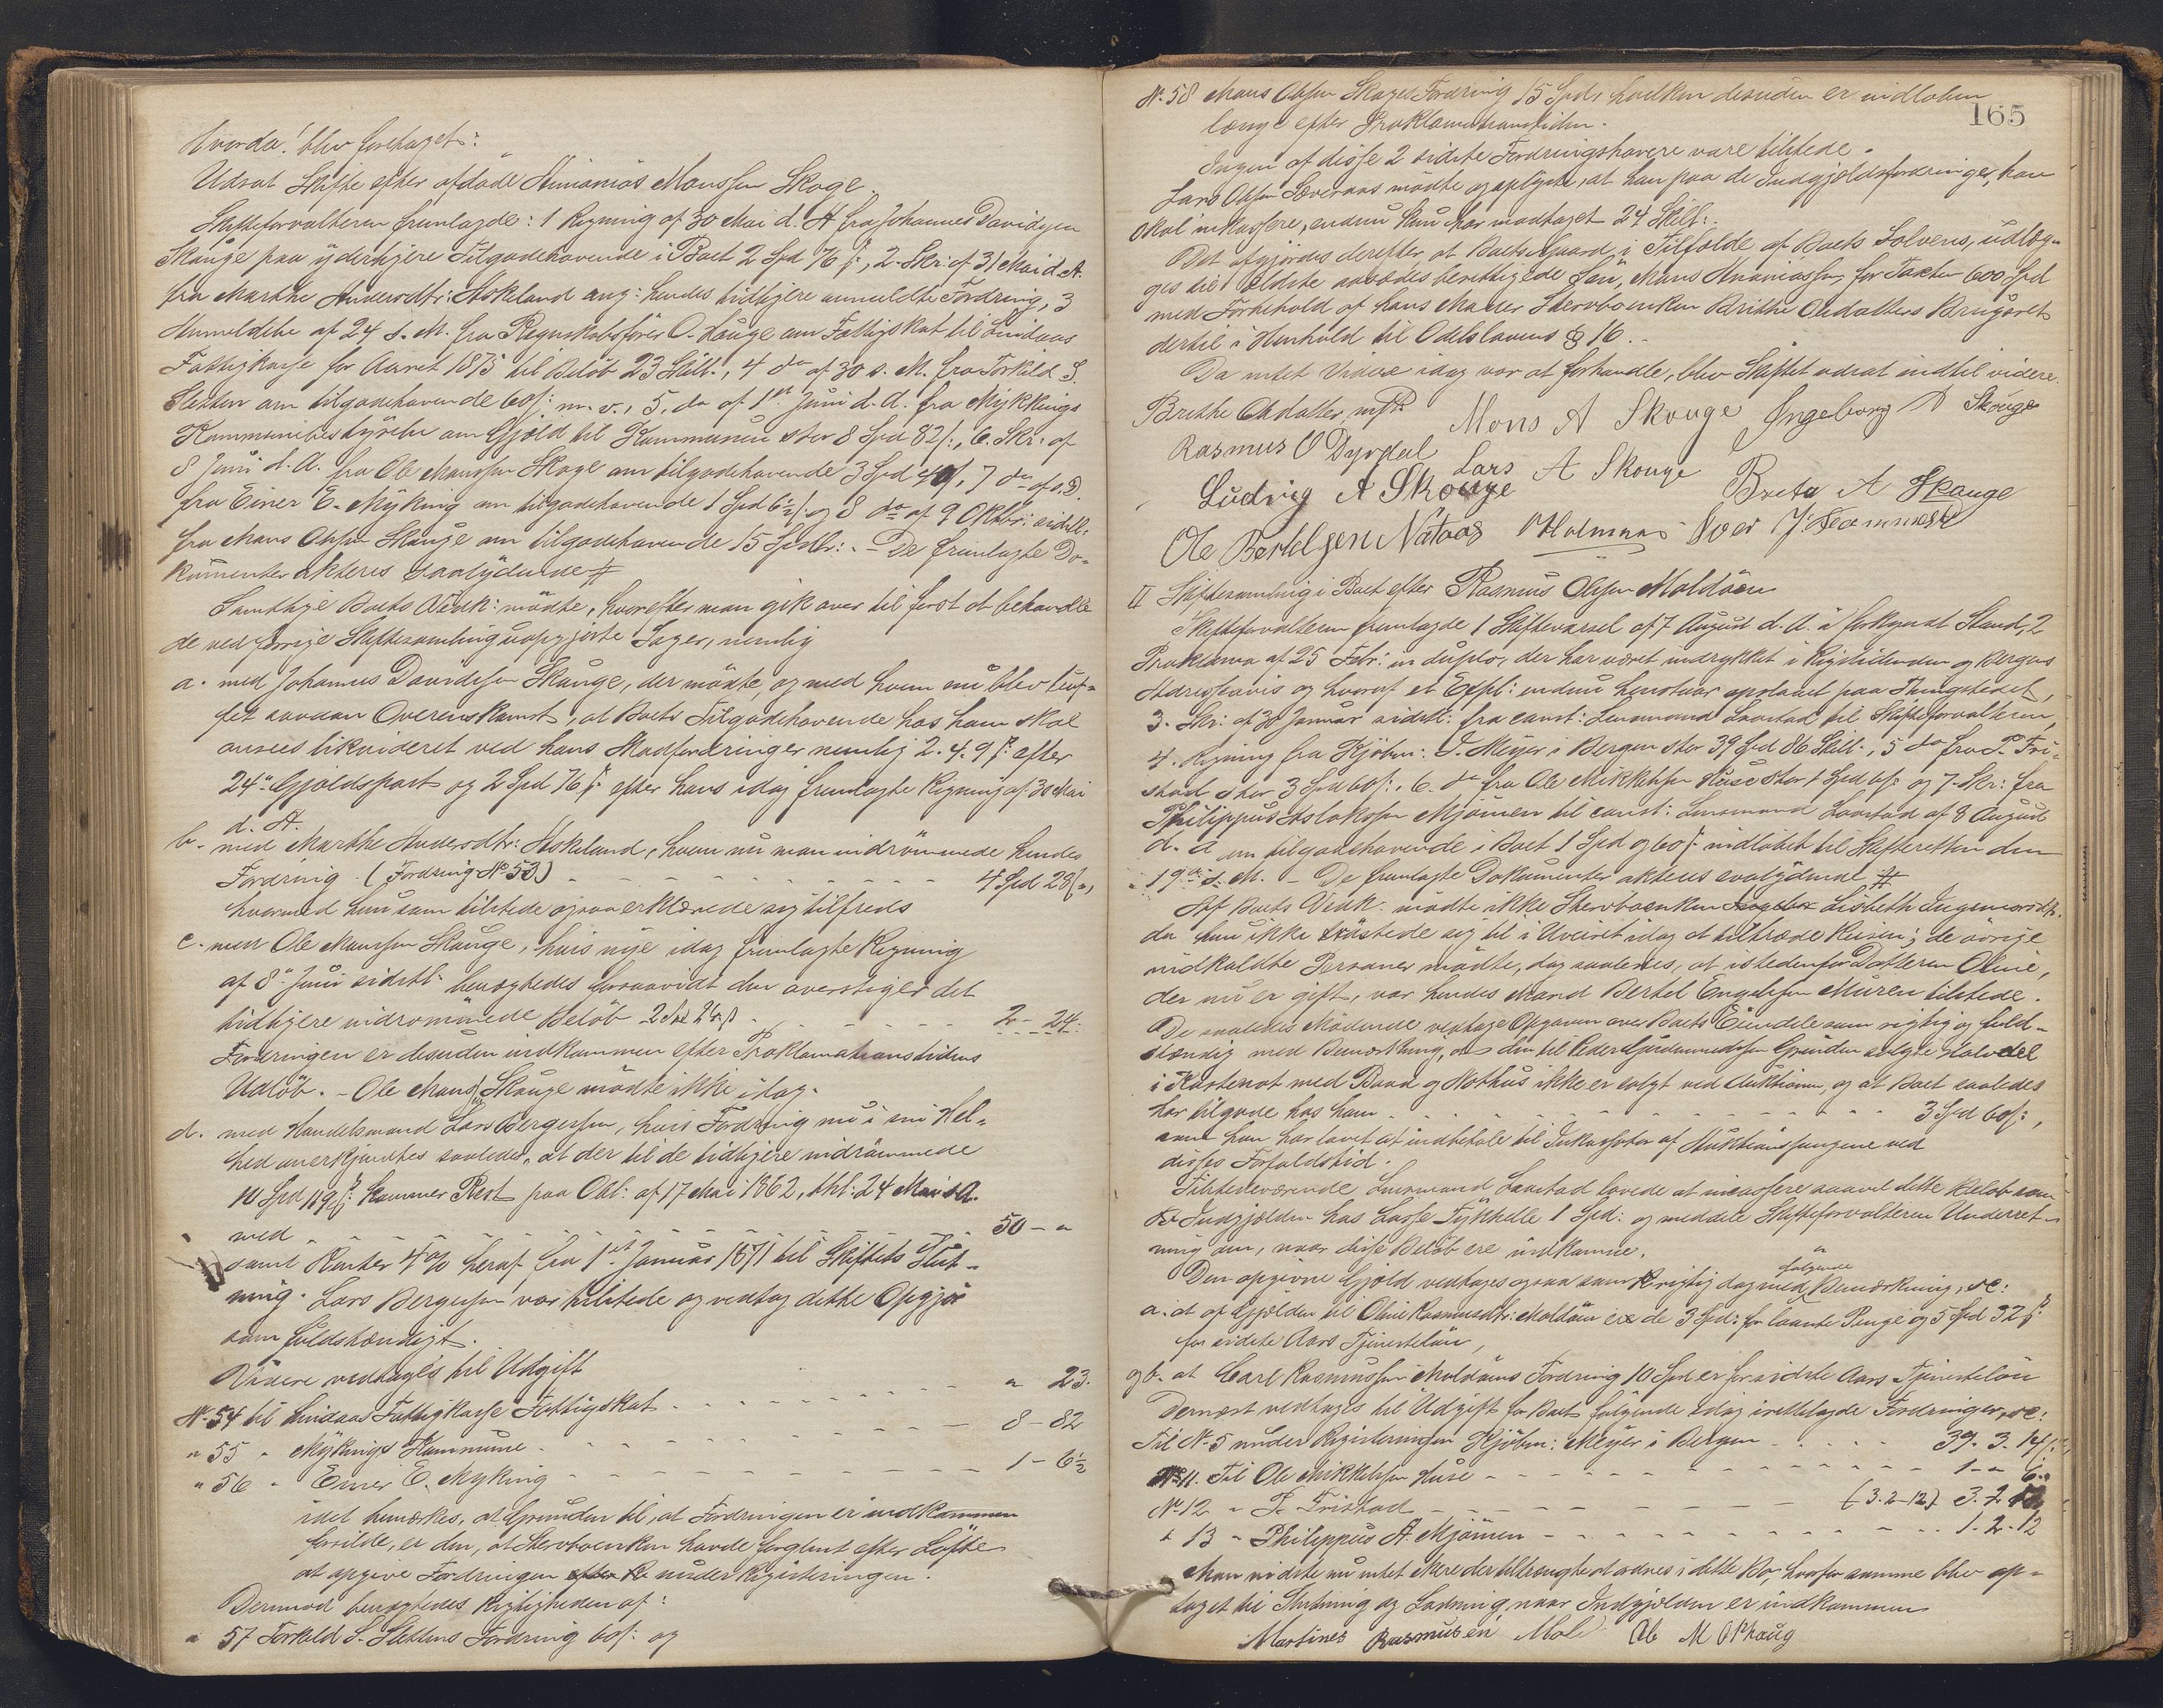 hvorda! blev foretaget:
Udsat Skifte efter afdøde Annanias Monssen Skoge
Skifteforvalteren fremlagde: 1 Regning af 30 Mai d. A fra Johannes Davidsen
Skauge paa yderligere Tilgodehavende i Boet 2 Spd 76 ß, 2. Skr: af 31 Mai d. A.
fra Marthe Andersdtr: Askeland ang: hendes tidligere anmeldte Fordring, 3
Anmeldelse af 24 s. M. fra Regnskabsfører O. Hauge om Fattigskat til Lindaas
Fattigkasse for Aaret 1875 til Beløb 23 Skill., 4 do af 30 s. M. fra Torkild S.
Sletten om tilgodehavende 60 ß: m. v., 5. do af 1ste Juni d. A. fra Mykkings
Kommunebestyrelse om Gjæld til Kommunen stor 8 Spd 82 ß:, 6. Skr: af
8 Juni d. A. fra Ole Monssen Skoge om tilgodehavende 3 Spd, 7 do af s. D.
fra Einer E. Myking om tilgodehavende 1 Spd 6½ ß: og 8 do af 9 Oktbr: sidstl:
fra Mons Olsen Skauge om tilgodehavende 15 Spdlr: . – De fremlagte Do-
kumenter akteres saalydende #
Samtlige Boets Vedk: mødte, hvorefter man gik over til først at behandle
de ved forrige Skiftesamling uopgjorte Sager, nemlig
a. med Johannes Davidsen Skauge, der mødte, og med hvem nu blev truf-
fet saadan Overenskomst, at Boets Tilgodehavende hos ham skal
ansees likvideret ved hans Modfordringer nemlig 2. 4. 9 ß: efter
24de Gjældspost og 2 Spd 76 ß: efter hans idag fremlagte Regning af 30 Mai
d. A.
b. med Marthe Andersdtr: Askeland, hvem nu man indrømmede hendes
Fordring. (Fordring No 53) - - - 4 Spd 28 ß,
hvormed hun som tilstede ogsaa erklærede sig tilfreds
c. med Ole Monssen Skauge, hvis nye idag fremlagte Regning
af 8de Juni sidstl: benægtedes forsaavidt den overstiger det
tidligere indrømmede Beløb 2 Spd 24 ß - - - 2 - 24.
Fordringen er desuden indkommen efter Proklamationstidens
Udløb. – Ole Mons: Skauge mødte ikke idag.
d. med Handelsmand Lars Bergersen, hvis Fordring nu i sin Hel-
hed anerkjendtes saaledes, at der til de tidligere indrømmede
10 Spd 119 ß: kommer Rest paa Obl: af 17 Mai 1862, thl: 24 Mai s A.
med - - - 50 – "
samt Renter 4 % heraf fra 1ste Januar 1871 til Skiftets Slut-
ning. Lars Bergersen var tilstede og vedtog dette Opgjør
som fuldstændigt.
Videre vedtages til Udgift
No 54 til Lindaas Fattigkasse Fattigskat - - - " 23.
" 55 " Mykings Kommune - - - 8 – 82
" 56 " Einer E. Myking - - - 1 – 6½
idet bemærkes, at Grunden til, at Fordringen er indkommen
forsilde, er den, at Stervboenken havde forglemt efter Løfte
at opgive Fordringen under Registeringen.
Derimod benægtedes Rigtigheden af:
" 57 Torkild S. Slettens Fordring 60 ß: og
165
No. 58 Mons Olsen Skoges Fordring 15 Spd, hvilken desuden er indloben
længe efter Proklamationstiden.
Ingen af disse 2 sidste Fordringshavere vare tilstede.
Lars Olsen Sævraas mødte og oplyste, at han paa de Indgjældsfordringer, han
skal inkassere, endnu kun har modtaget 24 Skill:.
Det afgjordes derefter, at Boets Gaard, i Tilfælde af Boets Solvens, udlæg-
ges til ældste aasædesberettigede Søn, Mons Ananiassen, for Taxten 600 Spd
med Forbehold af hans Moder Stervboenken Brithe Olsdatters Brugsret
dertil i Henhold til Odelslovens § 16. .
Da intet videre idag var at forhandle, blev Skiftet udsat indtil videre.
Brithe Olsdatter mfP Mons A Skouge Ingeborg A Skouge
Rasmus O Dyrdal Lars A Skouge
Ludvig A Skouge Breta A Skouge
Ole Bertelsen Nataas OHolmaas Iver J:
II Skiftesamling i Boet efter Rasmus Olsen Moldøen
Skifteforvalteren fremlagde 1 Skiftevarsel af 7 August d. A. i forkyndt Stand, 2
Proklama af 25 Febr: in duplo, der har været indrykket i Rigstidenden og Bergens
Adresseavis og hvoraf et Expl: endnu henstaar opslaaet paa Thingstedet,
3. Skr: af 30 Januar sidstl: fra const: Lensmand Lavstad til Skifteforvalteren,
4. Regning fra Kjøbm: D. Meyer i Bergen stor 39 Spd 86 Skill., 5 do fra P. Fri-
stad stor 3 Spd 60 ß:, 6. do fra Ole Mikkelsen Huse stor 1 Spd 6 ß: og 7. Skr: fra
Philippus Aslaksen Mjømen til const: Lensmand Lavstad af 8 August
d. A om tilgodehavende i Boet 1 Spd og 60 ß: indløbet til Skifteretten den
19de s. M. – De fremlagte Dokumenter akteres saalydende #
Af Boets Vedk: mødte ikke Stervboenken Lisbeth Ingemarsdtr.
da hun ikke trøstede sig til i Uveiret idag at tiltræde Reisen; de øvrige
indkaldte Personer mødte, dog saaledes, at istedenfor Datteren Oline,
der nu er gift, var hendes Mand Bertel Engelsen Muren tilstede.
De saaledes Mødende vedtage Opgaven over Boets Eiendele som rigtig og fuld-
stændig med Bemærkning, at den til Peder Gudmundsen Grinden solgte Halvdel
i Kastenot med Baad og Nothus ikke er solgt ved Auktionen, og at Boet saaledes
har tilgode hos ham - - - 3 Spd 60 ß:,
som han har lovet at indbetale til Inkassator af Auktionspengene ved
disses Forfaldstid.
Tilstedeværende Lensmand Lavstad lovede at incassere saavel dette Beløb som
Indgjælden hos Lasse Fykkelle 1 Spd: og meddele Skifteforvalteren Underret-
ning om, naar disse Beløb ere indkomne.
Den opgivne Gjæld vedtages ogsaa som rigtig dog med følgende Bemærkning, sc:
a. at af Gjælden til Oline Rasmusdtr: Moldøen ere de 3 Spd: for laante Penge og 5 Spd 32 ß:
for sidste Aars Tjenesteløn,
og b. at Carl Rasmussen Moldøens Fordring 10 Spd er for sidste Aars Tjenesteløn
Dernæst vedtages til Udgift for Boet følgende idag irettelagde Fordringer, sc:
Til No 5 under Registeringen Kjøbm: Meyer i Bergen - - - 39. 3. 14 ß:
No 11. Til Ole Mikkelsen Huse - - - 1 - " 6.
No 12 " P. Fristad - - - (3. 2 - 12) 3. 2.
" 13 " Philippus A. Mjømen - - - 1. 2. 12
Man vidste nu intet Mere der tiltrængte at ordnes i dette Bo, hvorfor samme blev op-
taget til Slutning og Lodning naar Indgjælden er indkommen
Martines Rasmusen Mold Ole M